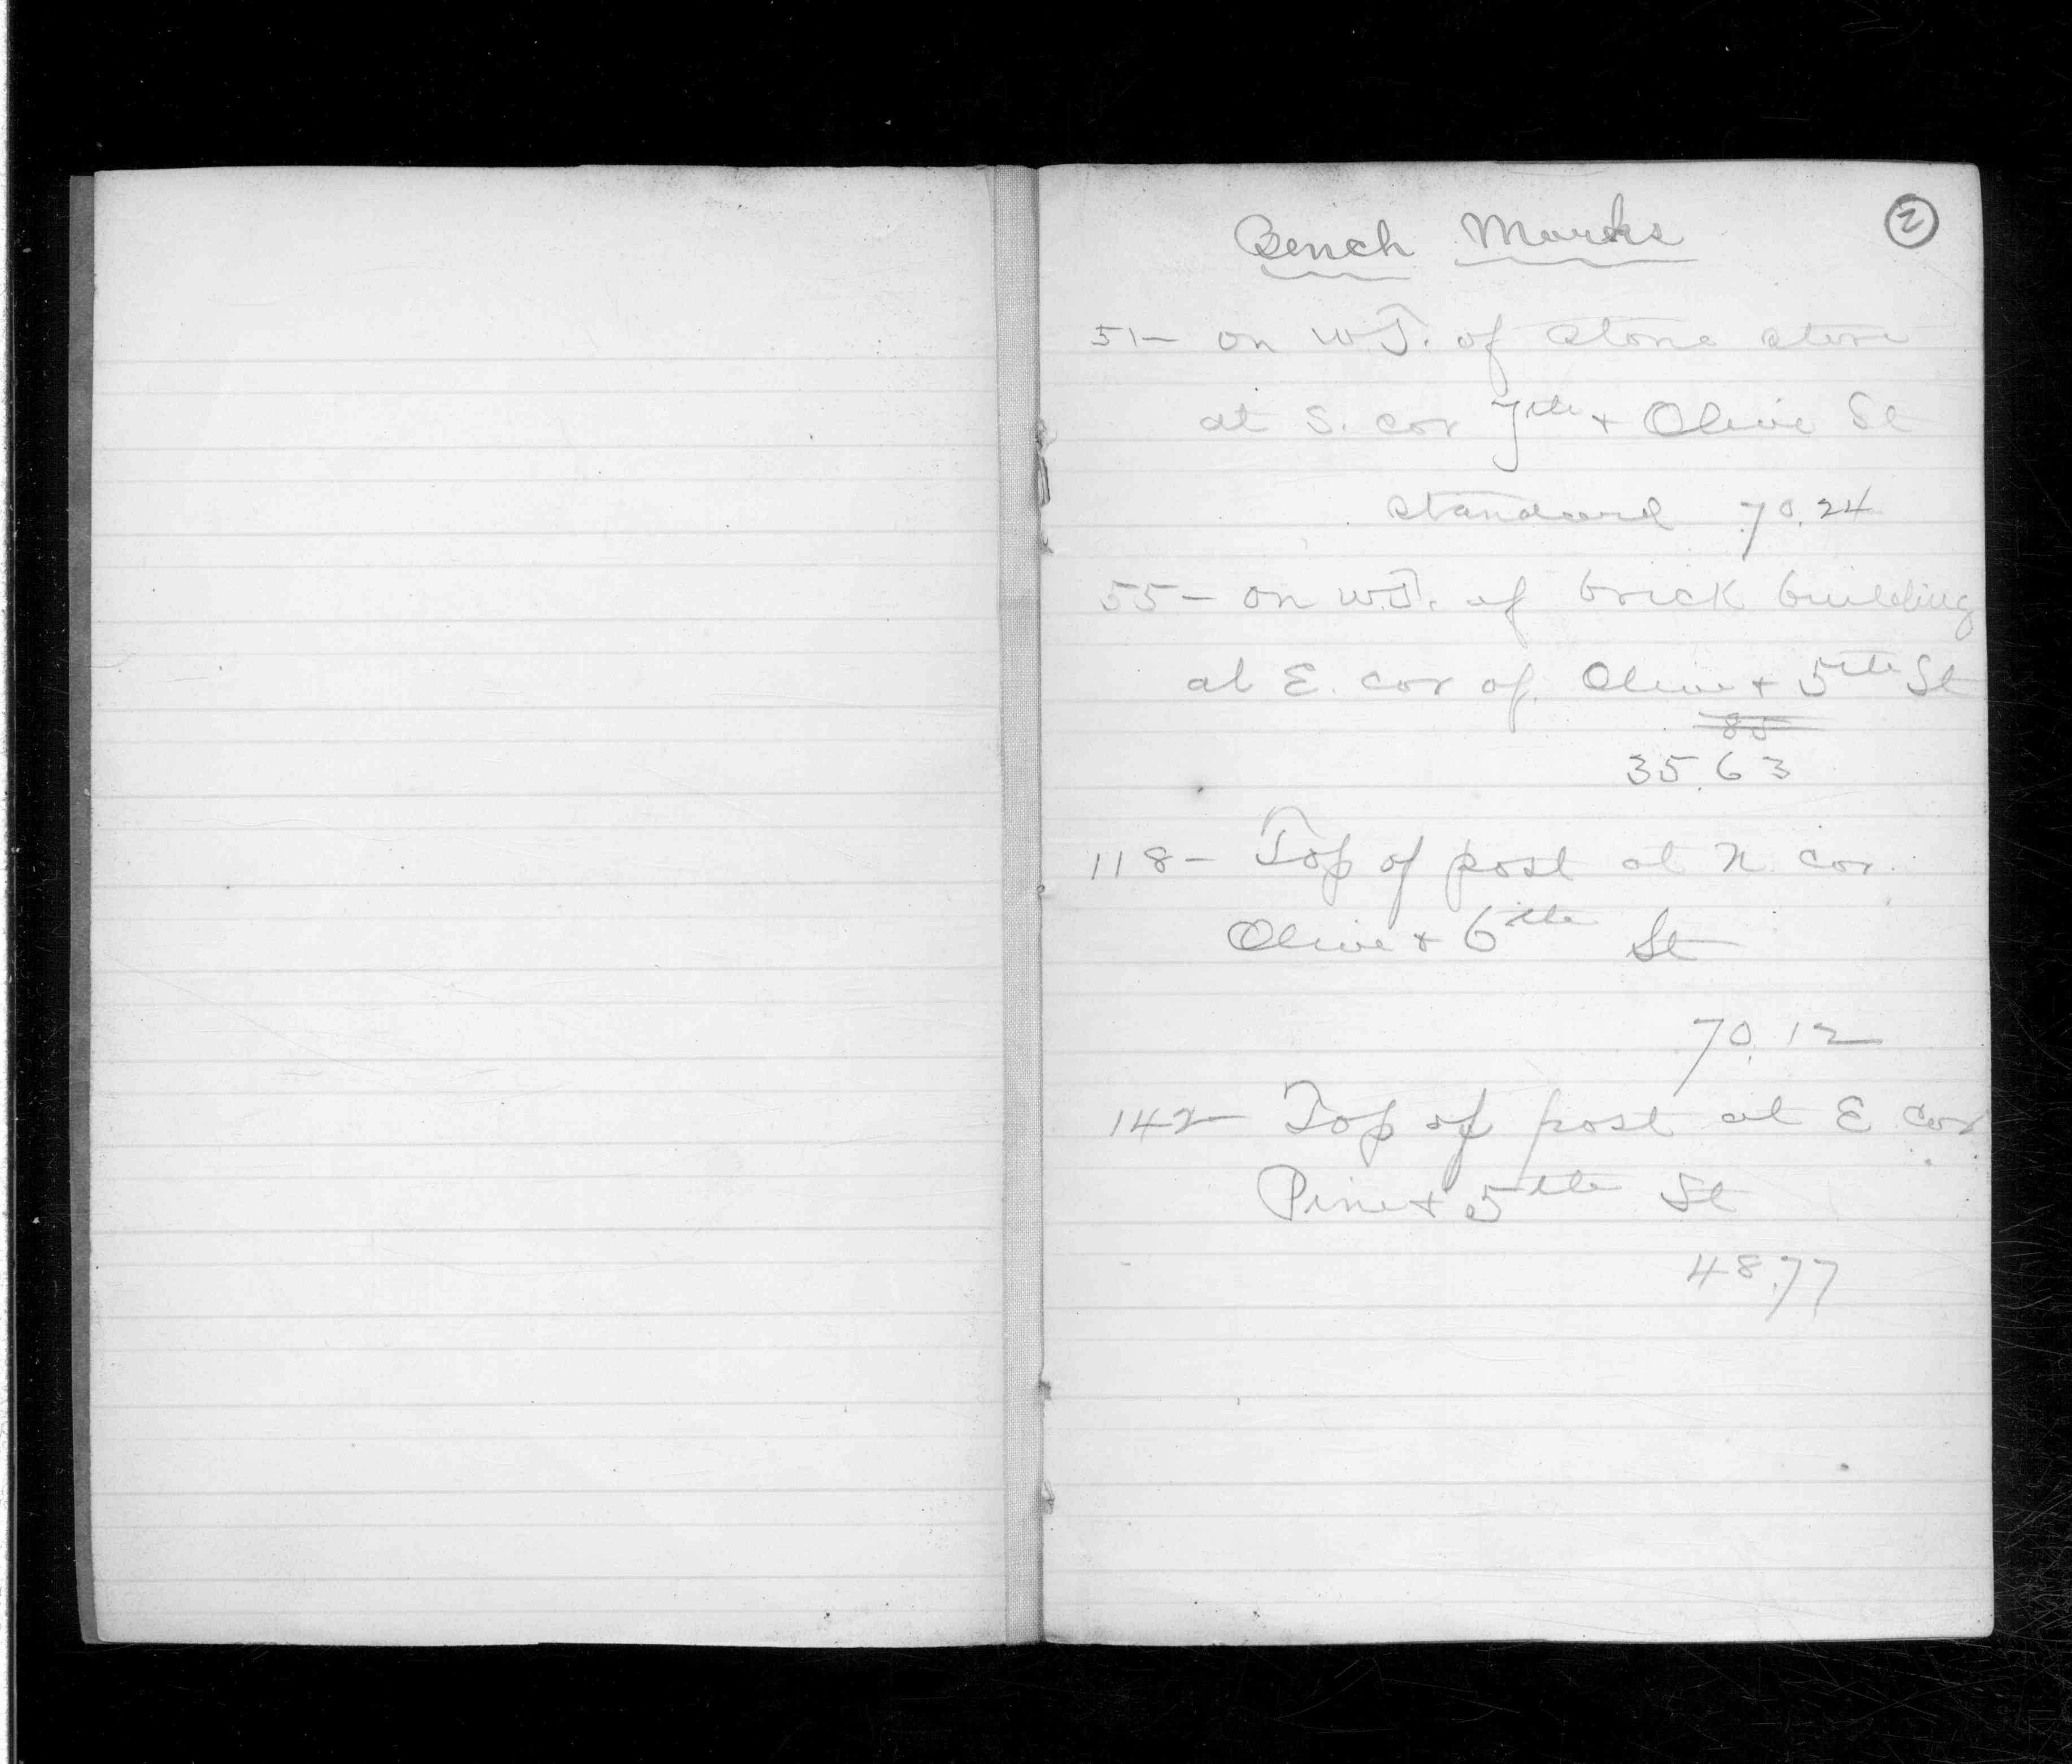 2
Bench Marks
51 - on W.T. of stone store
at S. cor 7th + Olive St
standard 70.24
55 - on W.T. of brick building
at E. cor of Olive + 5th St
85
35.63
118 - Top of post at N. cor.
Olive + 6th St
70.12
142 - Top of post at E cor
Pine + 5th St
48.77